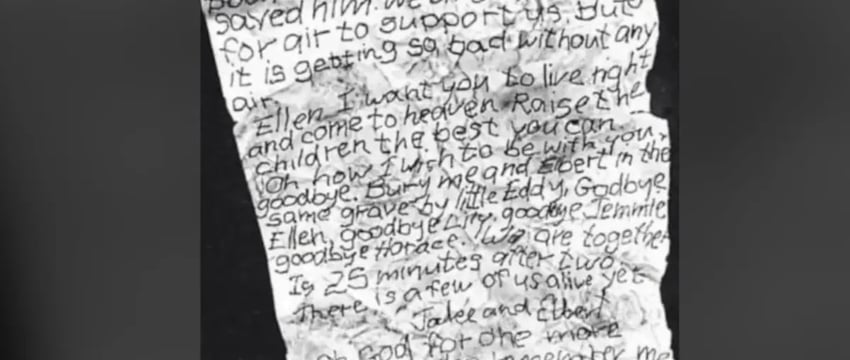 saved him. we
for air to support us. But
it is getting so bad without any
air.
Ellen I want you to live right
and come to heaven. Raise the
children the best you can.
Oh how I wish to be with you,
goodbye. Bury me and Elbert in the
same grave by little Eddy, Godbye
Ellen, goodbye Lily, goodbye Jemmie
goodbye Horace. We are together
Is 25 minutes after two
There is a few of us alive yet
Jake and Elbert
oh God for one more
me